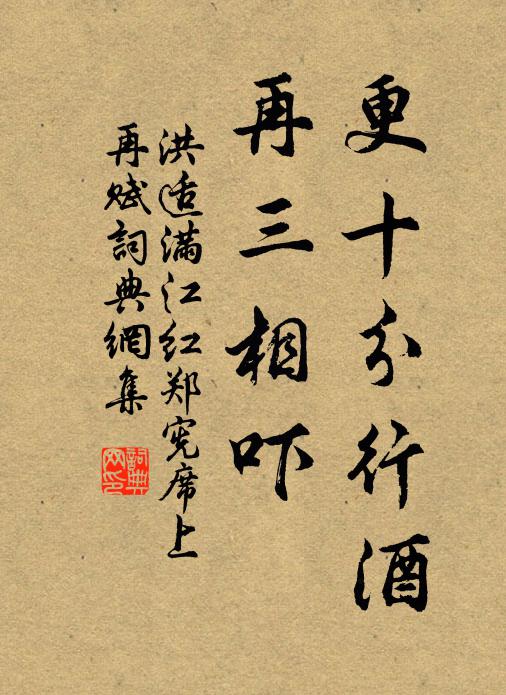 更十分行酒
再三相吓
洪适满江红郑宪席上
再赋詞典網集
詞典网印